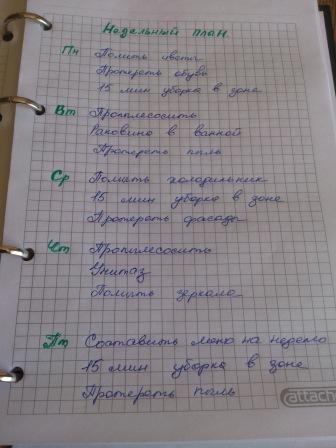 Недельный план.
Пн Полить цветы
Протереть обувь
15 мин уборка в зоне
Вт Пропылесосить
Раковина в ванной
Протереть пыль
Ср Помыть холодильник
15 мин уборка в зоне
Протереть фасады
Чт Пропылесосить
Унитаз
Помыть зеркала
Пт Составить меню на неделю
15 мин уборка в зоне
Протереть пыль
attach